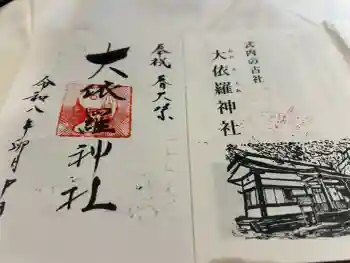 式内の古社
大依羅神社
奉祝 春大祭
大依羅神社
令和八年卯月